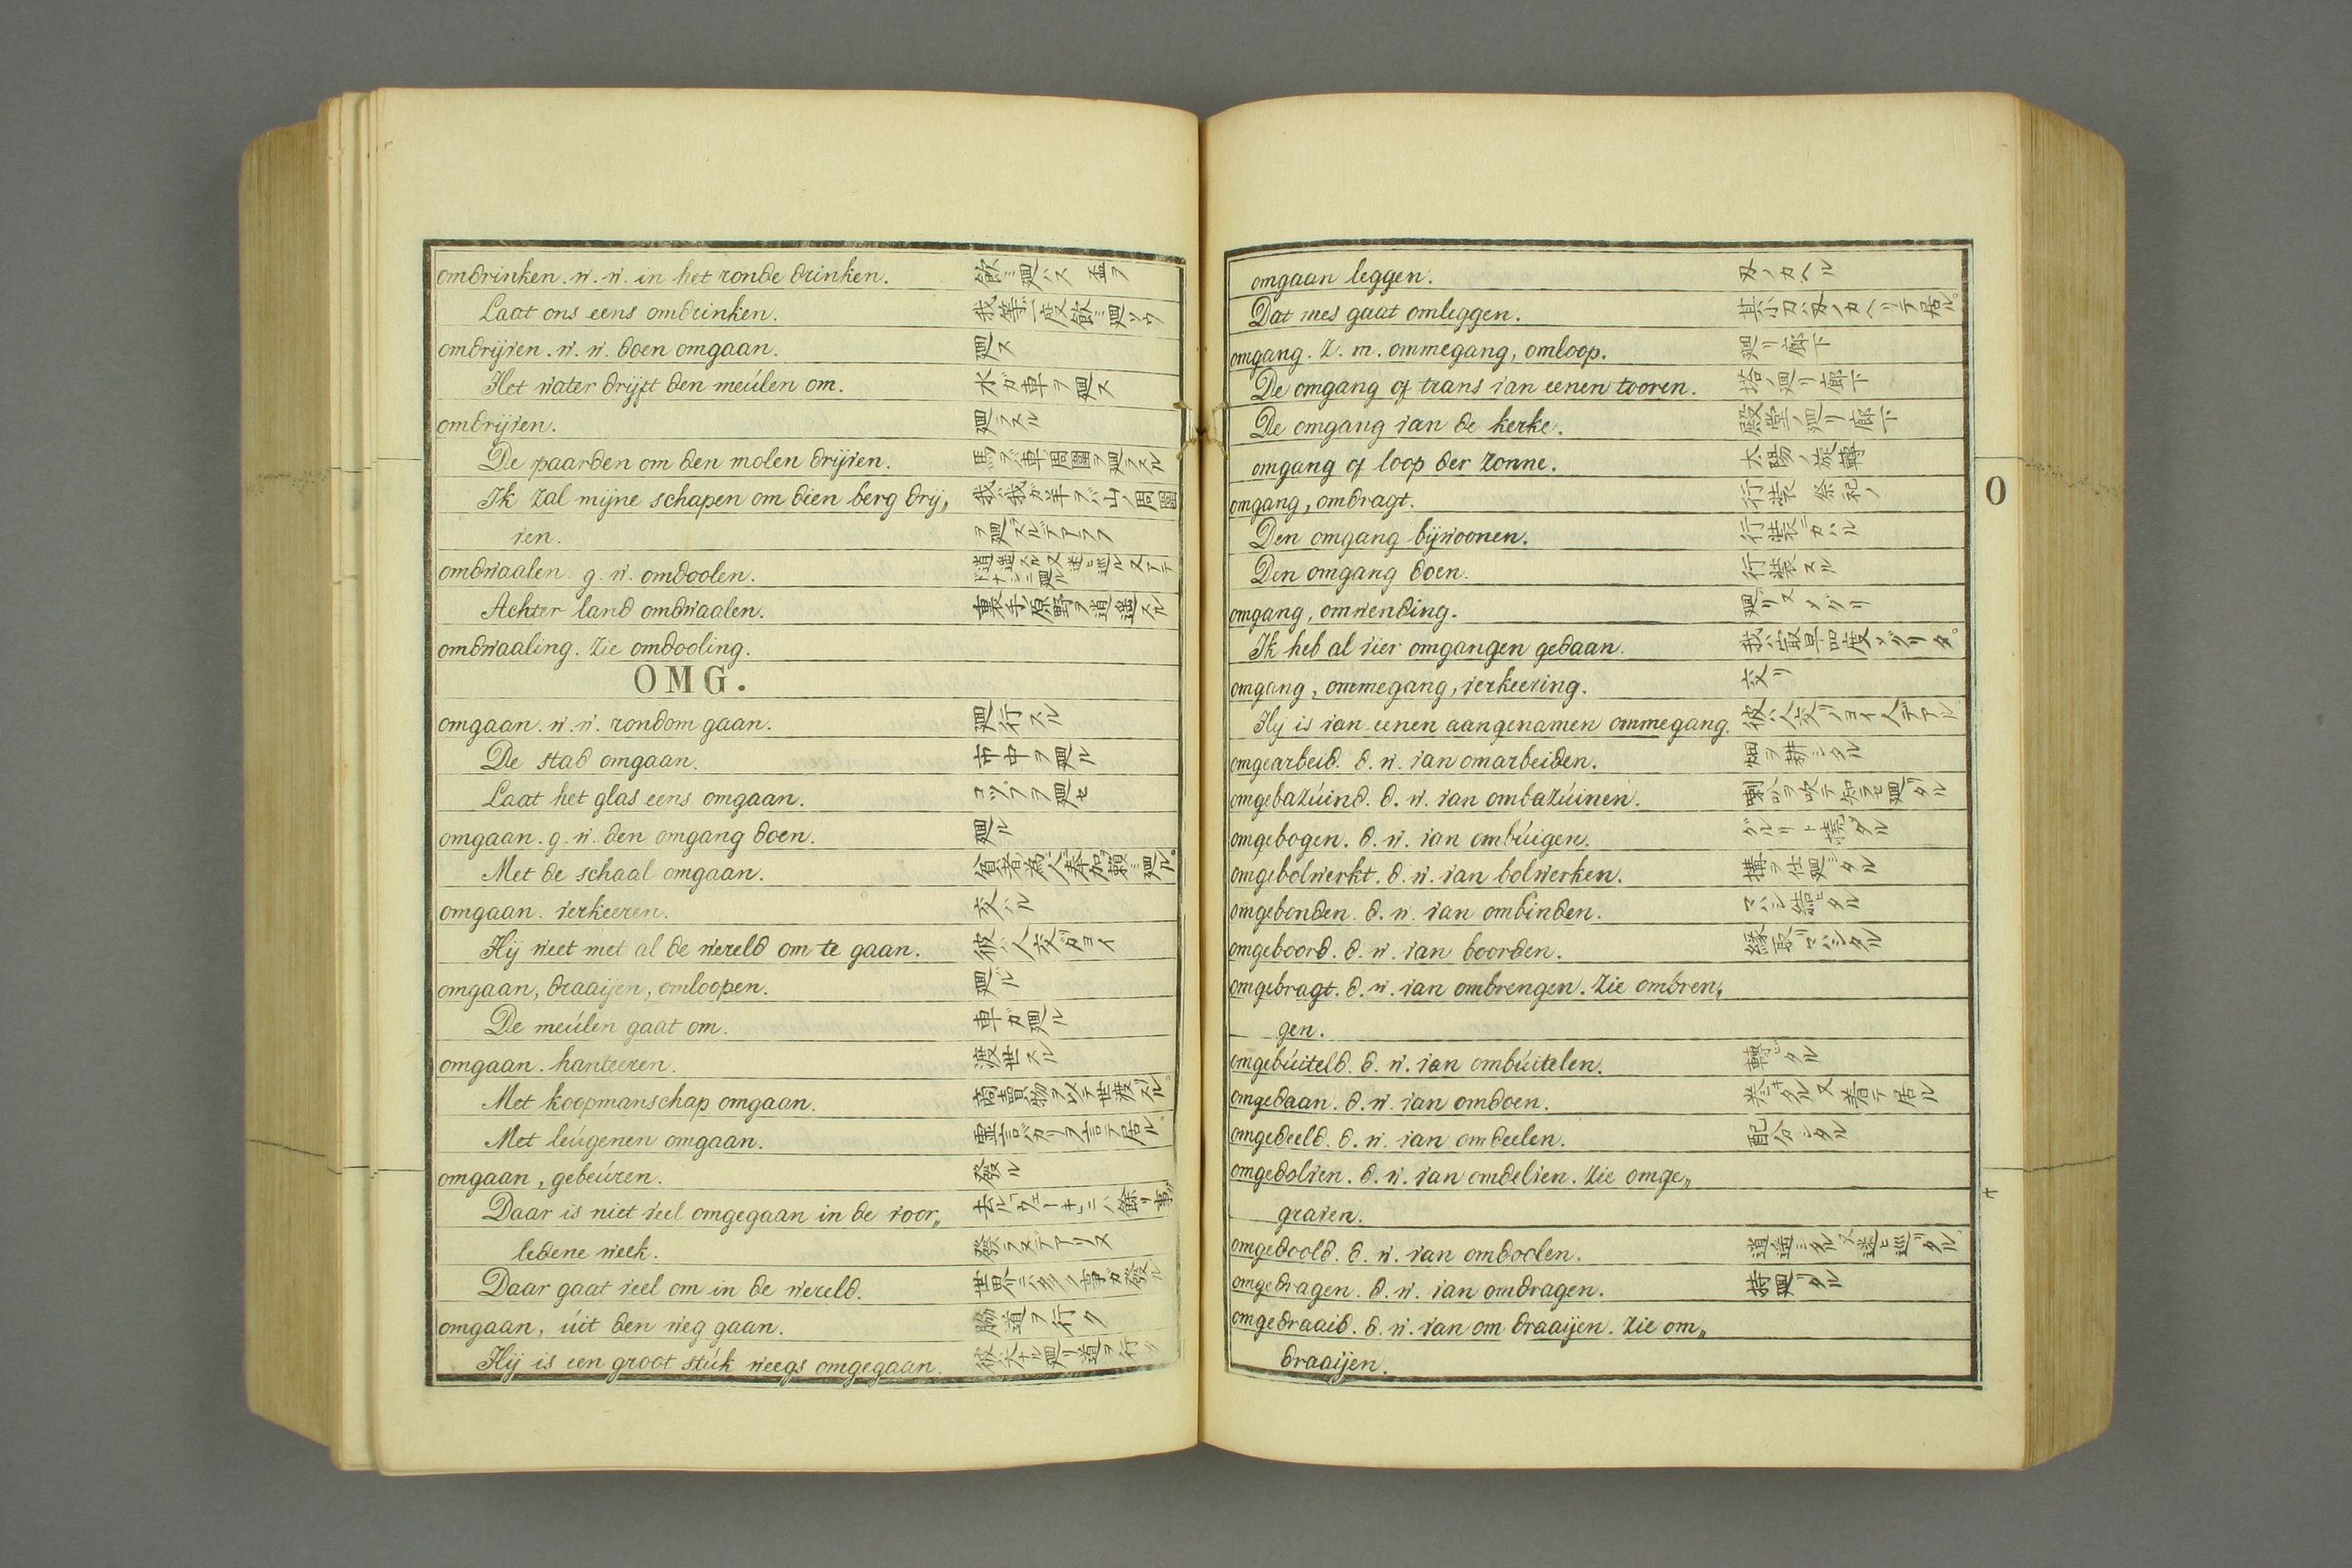 omdrinken. w. w. in het ronde drinken. 飲ミ廻ス 盃ヲ
Laat ons eens omdrinken. 我等一度飲ミ廻ソウ
omdrijven. w. w. doen omgaan. 廻ス
Het water drijft den meúlen om. 水ガ車ヲ廻ス
omdrijven. 廻ラスル
De paarden om den molen drijven. 馬ヲ車ノ周圍ヲ廻ラスル
Ik zal mijne schapen om dien berg drij„ 我ハ我ガ羊ヲ山ノ周圍
ven. ヲ廻ラスルデアラフ
omdwaalen. g. w. omdoolen.
Achter land omdwaalen. 裏手原野ヲ逍遙スル
omdwaaling. zie omdooling.
OMG.
omgaan. w. w. rondom gaan. 廻行スル
De stad omgaan. 市中ヲ廻ル
Laat het glas eens omgaan. コップヲ廻セ
omgaan. g. w. den omgang doen. 廻ル
Met de schaal omgaan.
omgaan. verkeeren. 交ハル
Hij weet met al de wereld om te gaan. 彼ハ人交リガヨイ
omgaan, draaijen, omloopen. 廻ル
De meúlen gaat om. 車ガ廻ル
omgaan. hanteeren. 渡世スル
Met koopmanschap omgaan. 商賣物ヲ以テ世渡スル。
Met leúgenen omgaan. 虚言バカリヲ言テ居ル。
omgaan, gebeúren. 發ル
Daar is niet veel omgegaan in de voor„ 去ル「ウェーキ」ニハ餘リ事
ledene week. 發ラヌデアリタ
Daar gaat veel om in de wereld. 世界ニハ多クノ事ガ發ル
omgaan, úit den weg gaan. 脇道ヲ行ク
Hij is een groot stúk weegs omgegaan. 彼ハ大ナル廻リ道ヲ行ク
omgaan leggen. 刄ノカヘル
Dat mes gaat omleggen. 其小刀ハ刄ノカヘリテ居ル。
omgang. z. m. ommegang, omloop. 廻リ廊下
De omgang of trans van eenen tooren. 塔ノ廻リ廊下
De omgang van de kerke. 殿堂ノ廻リ廊下
omgang of loop der zonne. 太陽ノ旋轉
omgang, omdragt. 行裝 祭祀ノ
Den omgang bijwoonen. 行裝ニカハル
Den omgang doen. 行裝スル
omgang, omwending. 廻リ又メグリ
Ik heb al vier omgangen gedaan. 我ハ最早四度メグリタ。
omgang, ommegang, verkeering. 交リ
Hij is van eenen aangenamen ommegang. 彼ハ人交リノヨイ人デアル
omgearbeid. d. w. van omarbeiden. 畑ヲ耕シタル
omgebazúind. d. w. van ombazúinen. 喇叭ヲ吹テ知ラセ廻リタル
omgebogen. d. w. van ombúigen. グルリト撓メタル
omgebolwerkt. d. w. van bolwerken. 構ヲ仕廻シタル
omgebonden. d. w. van ombinden. マハシ結ヒタル
omgeboord. d. w. van boorden. 縁取リマハシタル
omgebragt. d. w. van ombrengen. zie ombren„
gen.
omgebúiteld. d. w. van ombúitelen. 轉ビタル
omgedaan. d. w. van omdoen. 巻キタル又着テ居ル
omgedeeld. d. w. van omdeelen. 配分シタル
omgedolven. d. w. van omdelven. zie omge„
graven.
omgedoold. d. w. van omdoolen. 逍遙シタル又迷ヒ巡リタル
omgedragen. d. w. van omdragen. 持廻リタル
omgedraaid. d. w. van om draaijen. zie om„
draaijen.
O